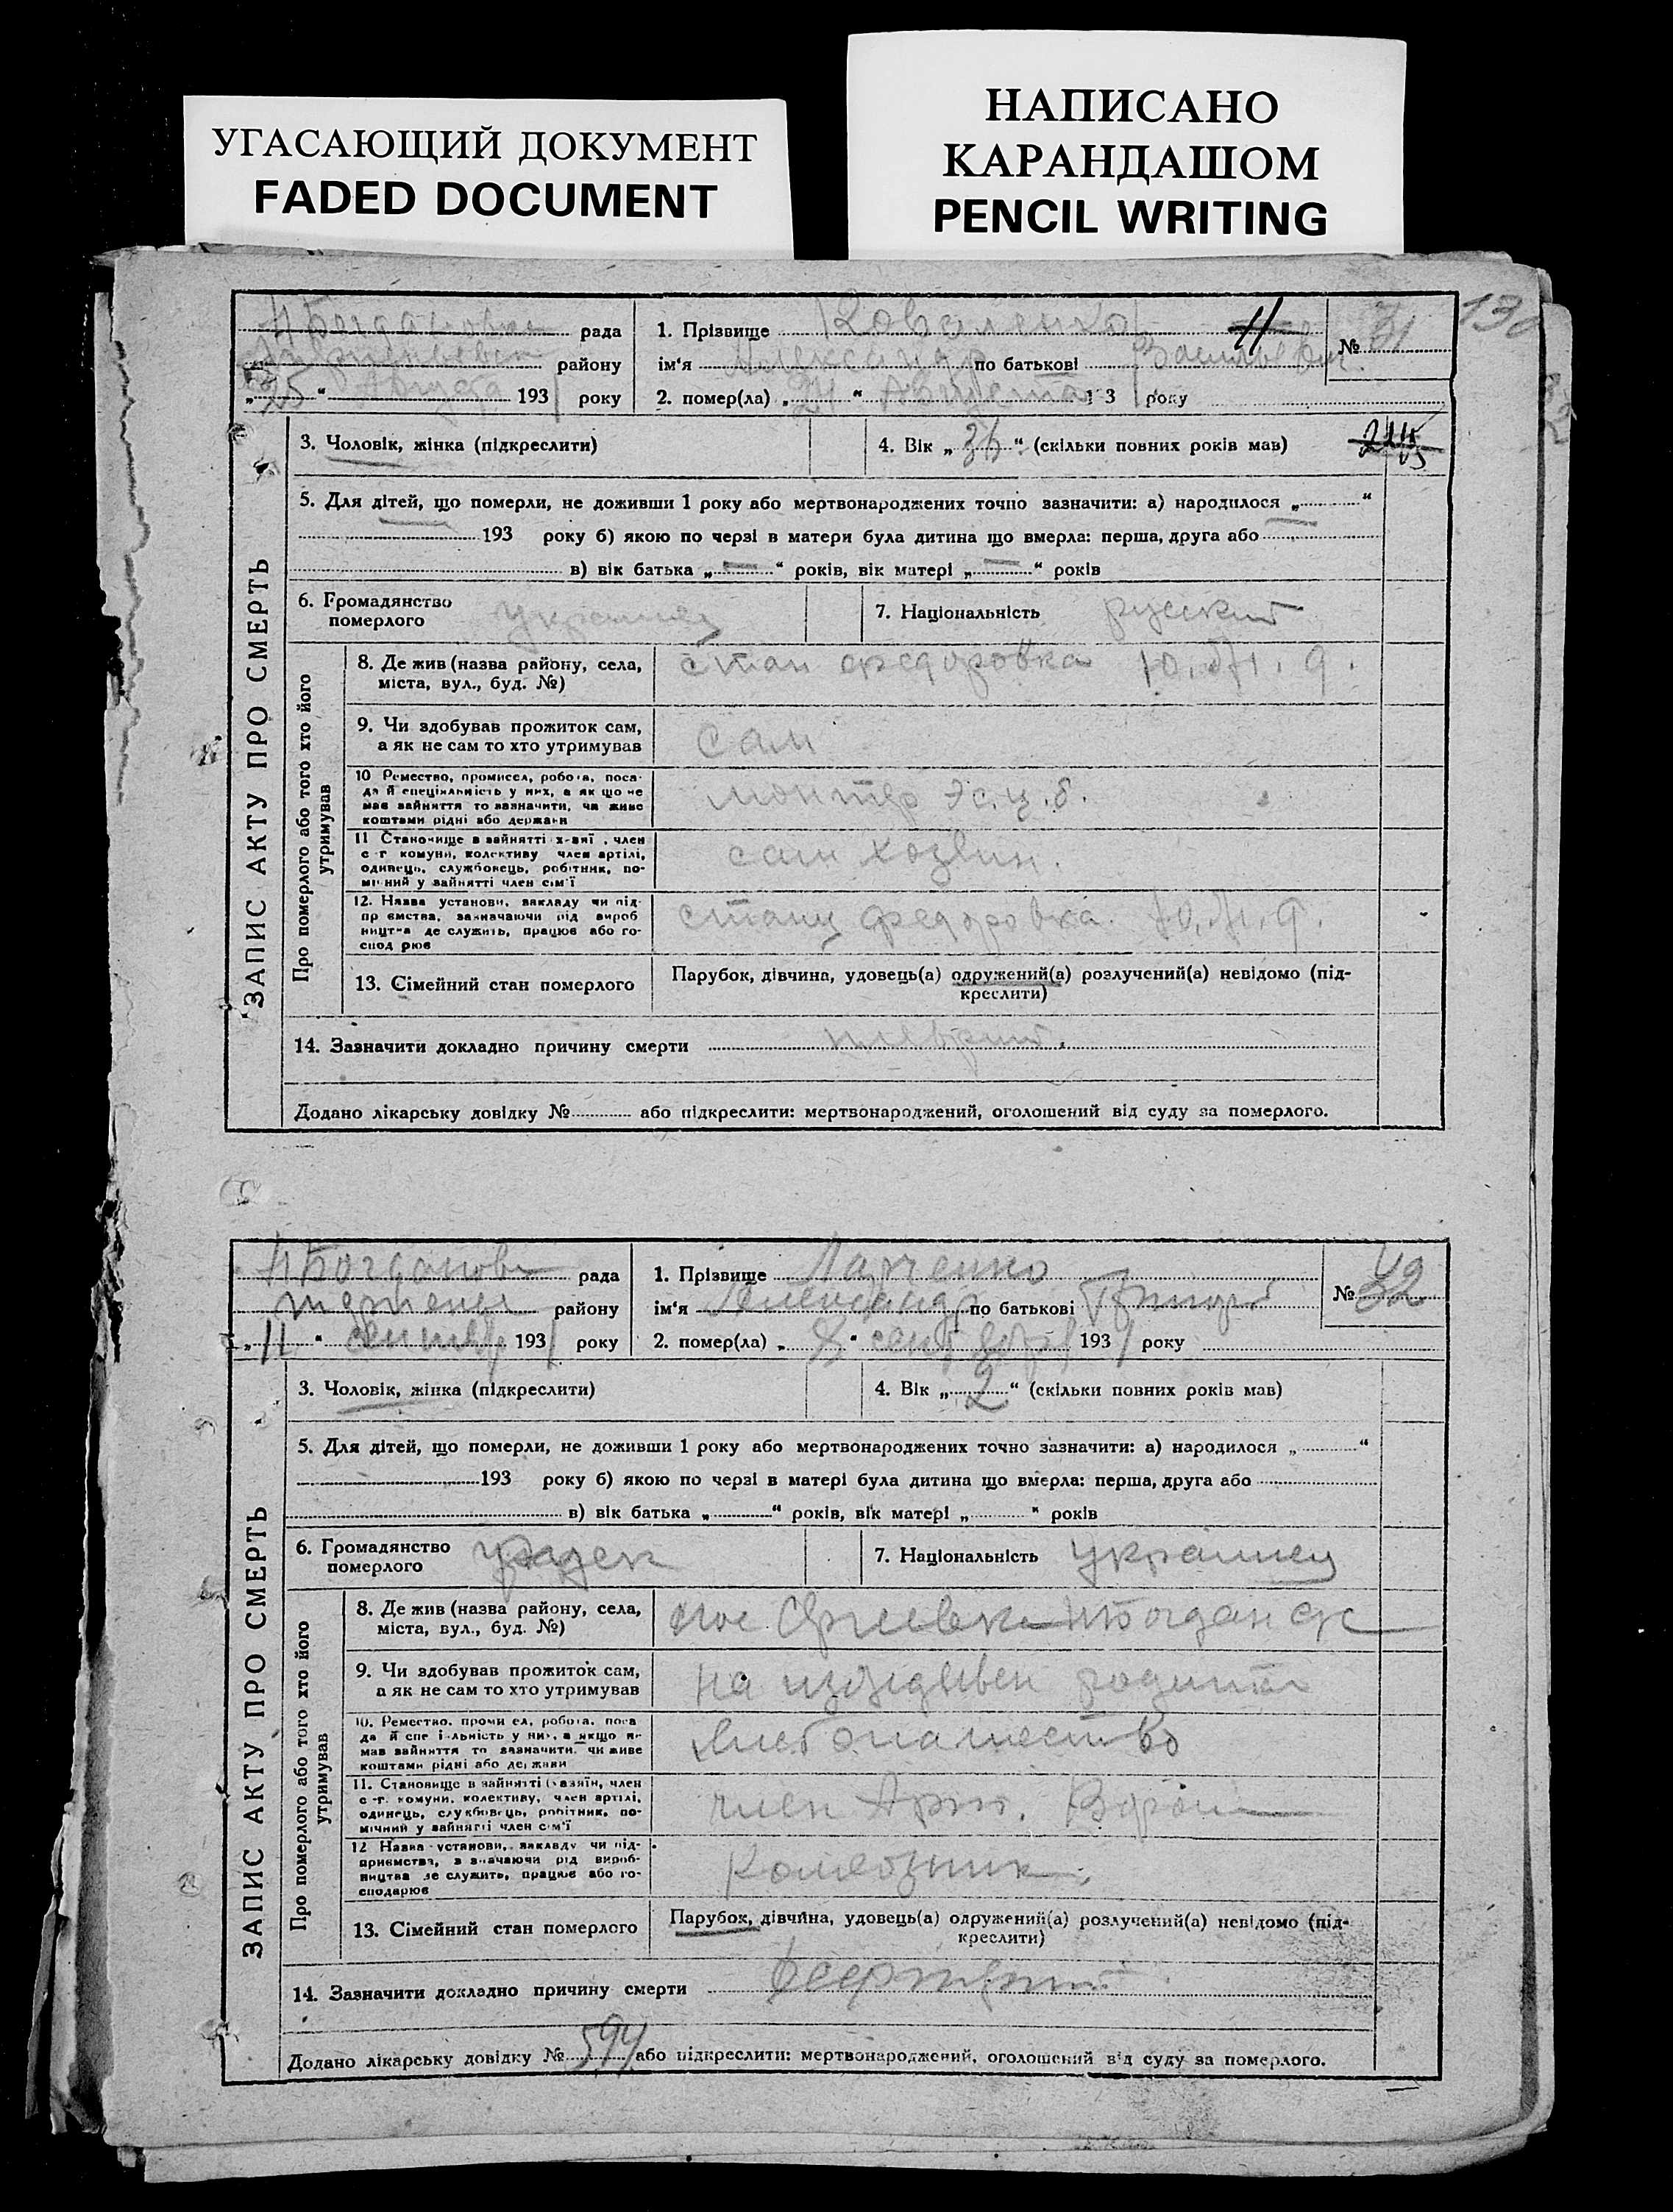 УГАСАЮЩИЙ ДОКУМЕНТ
FADED DOCUMENT
НАПИСАНО
КАРАНДАШОМ
PENCIL WRITING
130
рада
району
„25“ Августа 1931 року
1. Прізвище Коваленко 11
ім'я Александр по батькові Васильевич
2. помер(ла) „24“ Августа 1 3 року
№ 31
3. Чоловік, жінка (підкреслити)
4. Вік „36“ (скільки повних років мав)
5. Для дітей, що померли, не доживши 1 року або мертвонароджених точно зазначити: а) народилося „ “
193 року б) якою по черзі в матери була дитина що вмерла: перша, друга або
в) вік батька „—“ років, вік матері „—“ років
6. Громадянство
померлого украинец
7. Національність русский
ЗАПИС АКТУ ПРО СМЕРТЬ
Про померлого або того хто його
утримував
8. Де жив (назва району, села,
міста, вул., буд. №)
стан федоровка
9. Чи здобував прожиток сам,
а як не сам то хто утримував
сам
10 Ремество, промисел, робота, поса-
да й спеціяльність у них, а як що не
має зайняття то зазначити, чи живе
коштами рідні або держави
монтер
11 Становище в зайнятті х-зяї , член
с-г комуни, колективу член артілі,
одинець, службовець, робітник, по-
мічний у зайнятті член сім'ї
сам хозяин.
12. Назва установи, закладу чи під-
пр ємства, зазначаючи рід вироб
ництва де служить, працює або го-
спод рює
станц федоровка
13. Сімейний стан померлого
Парубок, дівчина, удовець(а) одружений(а) розлучений(а) невідомо (під-
креслити)
14. Зазначити докладно причину смерти плеврит.
Додано лікарську довідку № або підкреслити: мертвонароджений, оголошений від суду за померлого.
рада
району
„11“ сентябр 1931 року
1. Прізвище
ім'я Александр по батькові
2. помер(ла) „ “ сентября 1931 року
№ 32
3. Чоловік, жінка (підкреслити)
4. Вік „2“ (скільки повних років мав)
5. Для дітей, що померли, не доживши 1 року або мертвонароджених точно зазначити: а) народилося „ “
193 року б) якою по черзі в матері була дитина що вмерла: перша, друга або
в) вік батька „ “ років, вік матері „ “ років
6. Громадянство
померлого
7. Національність украинец
ЗАПИС АКТУ ПРО СМЕРТЬ
Про померлого або того хто його
утримував
8. Де жив (назва району, села,
міста, вул., буд. №)
9. Чи здобував прожиток сам,
а як не сам то хто утримував
на
10. Ремество, проми ел, робота, поса
да й спе і-льність у них, а якщо н-
мав зайняття то зазначити, чи живе
коштами рідні або держави
хлебопашество
11. Становище в зайнятті (хазяїн, член
с-г. комуни, колективу, член артілі,
одинець, службовець, робітник, по-
мічний у зайнятті член сім'ї
член
12 Назва установи, закладу чи під-
приємства, зазначаючи рід вироб-
ництва де служить, працює або го-
сподарює
13. Сімейний стан померлого
Парубок, дівчина, удовець(а) одружений(а) розлучений(а) невідомо (під-
креслити)
14. Зазначити докладно причину смерти
Додано лікарську довідку № 594 або підкреслити: мертвонароджений, оголошений від суду за померлого.